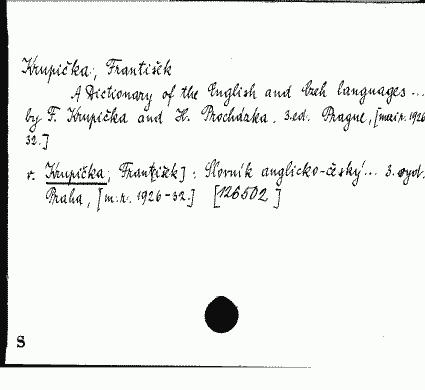 Krupička, František
A Dictionary of the English and Czeh languages ...
by F. Krupička and H. Procházka. 3.ed. Prague, [mezi r. 1926
32.]
v. Krupička, Fran[tišek] : Slovník anglicko-český ... 3. vyd.
Praha, [m. r. 1926-32.] [126502]
S